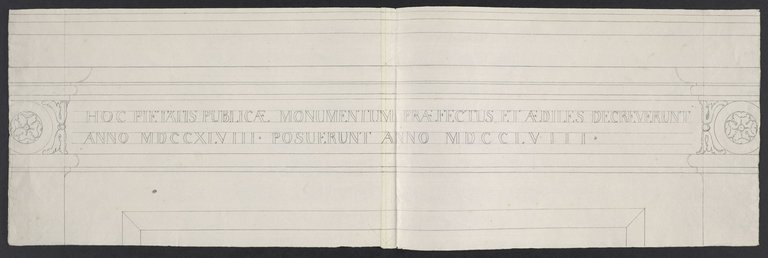 HOC PIETATIS PUBLICÆ MONUMENTUM PRÆFECTUS ET ÆDILES DECREVERUNT
ANNO MDCCXLVIII · POSUERUNT ANNO MDCCLVIII ·